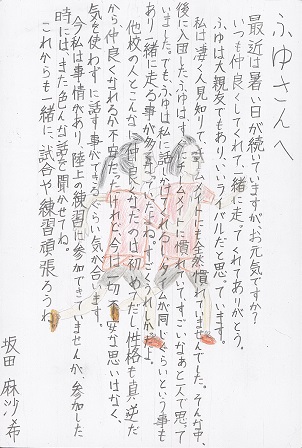 ふゆさんへ
最近は暑い日が続いていますがお元気ですか？
いつも仲良くしてくれて、一緒に走ってくれてありがとう。
ふゆは大親友でもあり、いいライバルだと思っています。
私は凄く人見知りで、チームメイトにも全然慣れていませんでした。そんな中
後に入団したふゆは、すぐにチームメイトに慣れていて、すごいなぁと人で思って
いました。でも、ふゆは私に話しかけてくれるし、タイムが同じくらいという事も
あり一緒に走る事が多かったよね。すごくうれしかったよ。
他校の人とこんなに仲良くなったのは初めてだし、性格も真逆だ
から、仲良くなれるか不安だったけれど、今は一切不安な思いはなく、
気を使わずに話す事ができるくらい気が合います。
今私は事情があり、陸上の練習に参加できていませんが、参加した
時には、また色んな話を聞かせてね。
これからも一緒に、試合や練習頑張ろうね。
坂田 麻沙希